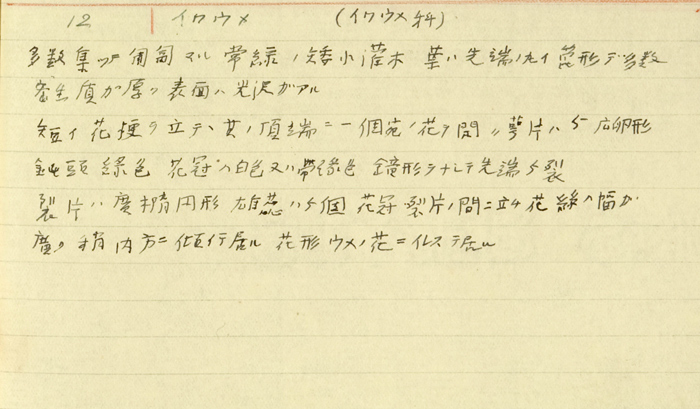 12 イワウメ (イワウメ科)
多数集ツテ匍匐スル常緑ノ矮小灌木 葉ハ先端ノ丸イ箆形デ多数
密生質ガ厚ク表面ハ光沢ガアル
短イ花梗ヲ立テ、其ノ頂端ニ一個宛ノ花ヲ開ク 萼片ハ5 広卵形
鈍頭 緑色 花冠ハ白色又ハ帯緑色 鐘形ヲナシテ先端5裂
裂片ハ広楕円形 雄蕊ハ5個 花冠裂片ノ間ニ立チ花絲ハ幅ガ
広ク稍内方ニ傾イテ居ル 花形ウメノ花ニ似ステ居ル